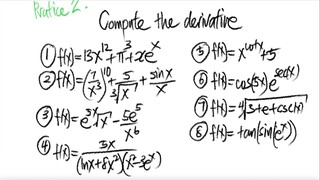 Practice 2.
Compute the derivative
① f(x)=13x^12+π^3+xe^x
② f(x)=(7/x^3)^10+5/∛x+sinx/x
③ f(x)=e^(3x)√x-5e^5/x^6
④ f(x)=5x/((lnx+8x^2)(x^2-3e^x))
⑤ f(x)=x^(cotx)+5
⑥ f(x)=cos(5x)e^(sec(x))
⑦ f(x)=∜(3+e+csc(x))
⑧ f(x)=tan(sin(e^x))